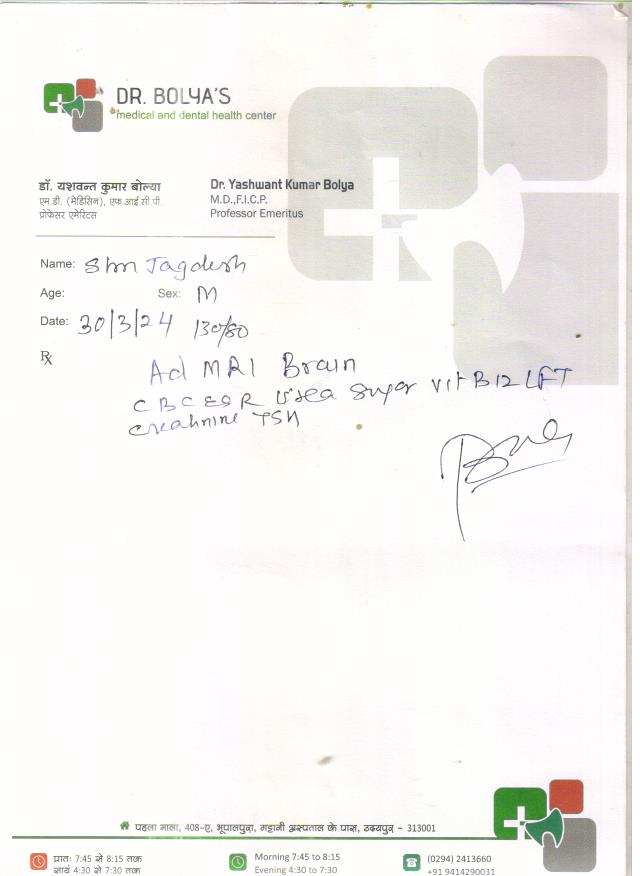 DR. BOLYA'S
medical and dental health center
डॉ. यशवन्त कुमार बोल्या
एम.डी. (मेडिसिन), एफ.आई.सी.पी.
प्रोफेसर एमेरिटस
Dr. Yashwant Kumar Bolya
M.D.,F.I.C.P.
Professor Emeritus
Name: Shri Jagdesh
Age: Sex: M
Date: 30/3/24 130/80
Rx
Ad MRI Brain
CBC ESR Urea Sugar Vit B12 LFT
Creatinine TSH
पहला माला, 408-ए, भूपालपुरा, भट्टानी अस्पताल के पास, उदयपुर - 313001
प्रातः 7:45 से 8:15 तक
सायं 4:30 से 7:30 तक
Morning 7:45 to 8:15
Evening 4:30 to 7:30
(0294) 2413660
+91 9414290031